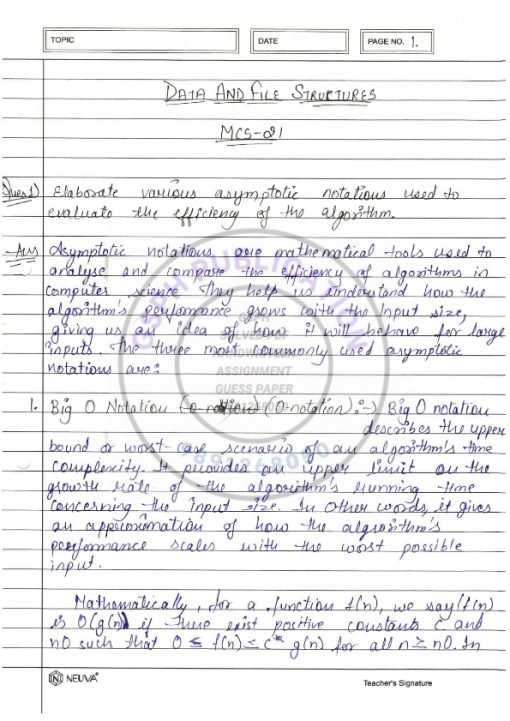 TOPIC
DATE
PAGE NO. 1.
DATA AND FILE STRUCTURES
MCS-021
Ques 1) Elaborate various asymptotic notations used to
evaluate the efficiency of the algorithm.
Ans Asymptotic notations are mathematical tools used to
analyse and compare the efficiency of algorithms in
computer science. They help us understand how the
algorithm's performance grows with the input size,
giving us an idea of how it will behave for large
inputs. The three most commonly used asymptotic
notations are:
1. Big O Notation (O-notation):-) Big O notation
describes the upper
bound or worst-case scenario of an algorithm's time
complexity. It provides an upper limit on the
growth rate of the algorithm's running time
concerning the input size. In other words, it gives
an approximation of how the algorithm's
performance scales with the worst possible
input.
Mathematically, for a function f(n), we say (f(n)
is O(g(n)) if there exist positive constants c and
n0 such that 0 ≤ f(n) ≤ c* g(n) for all n ≥ n0. In
NEUVA
Teacher's Signature
ASSIGNMENT
GUESS PAPER